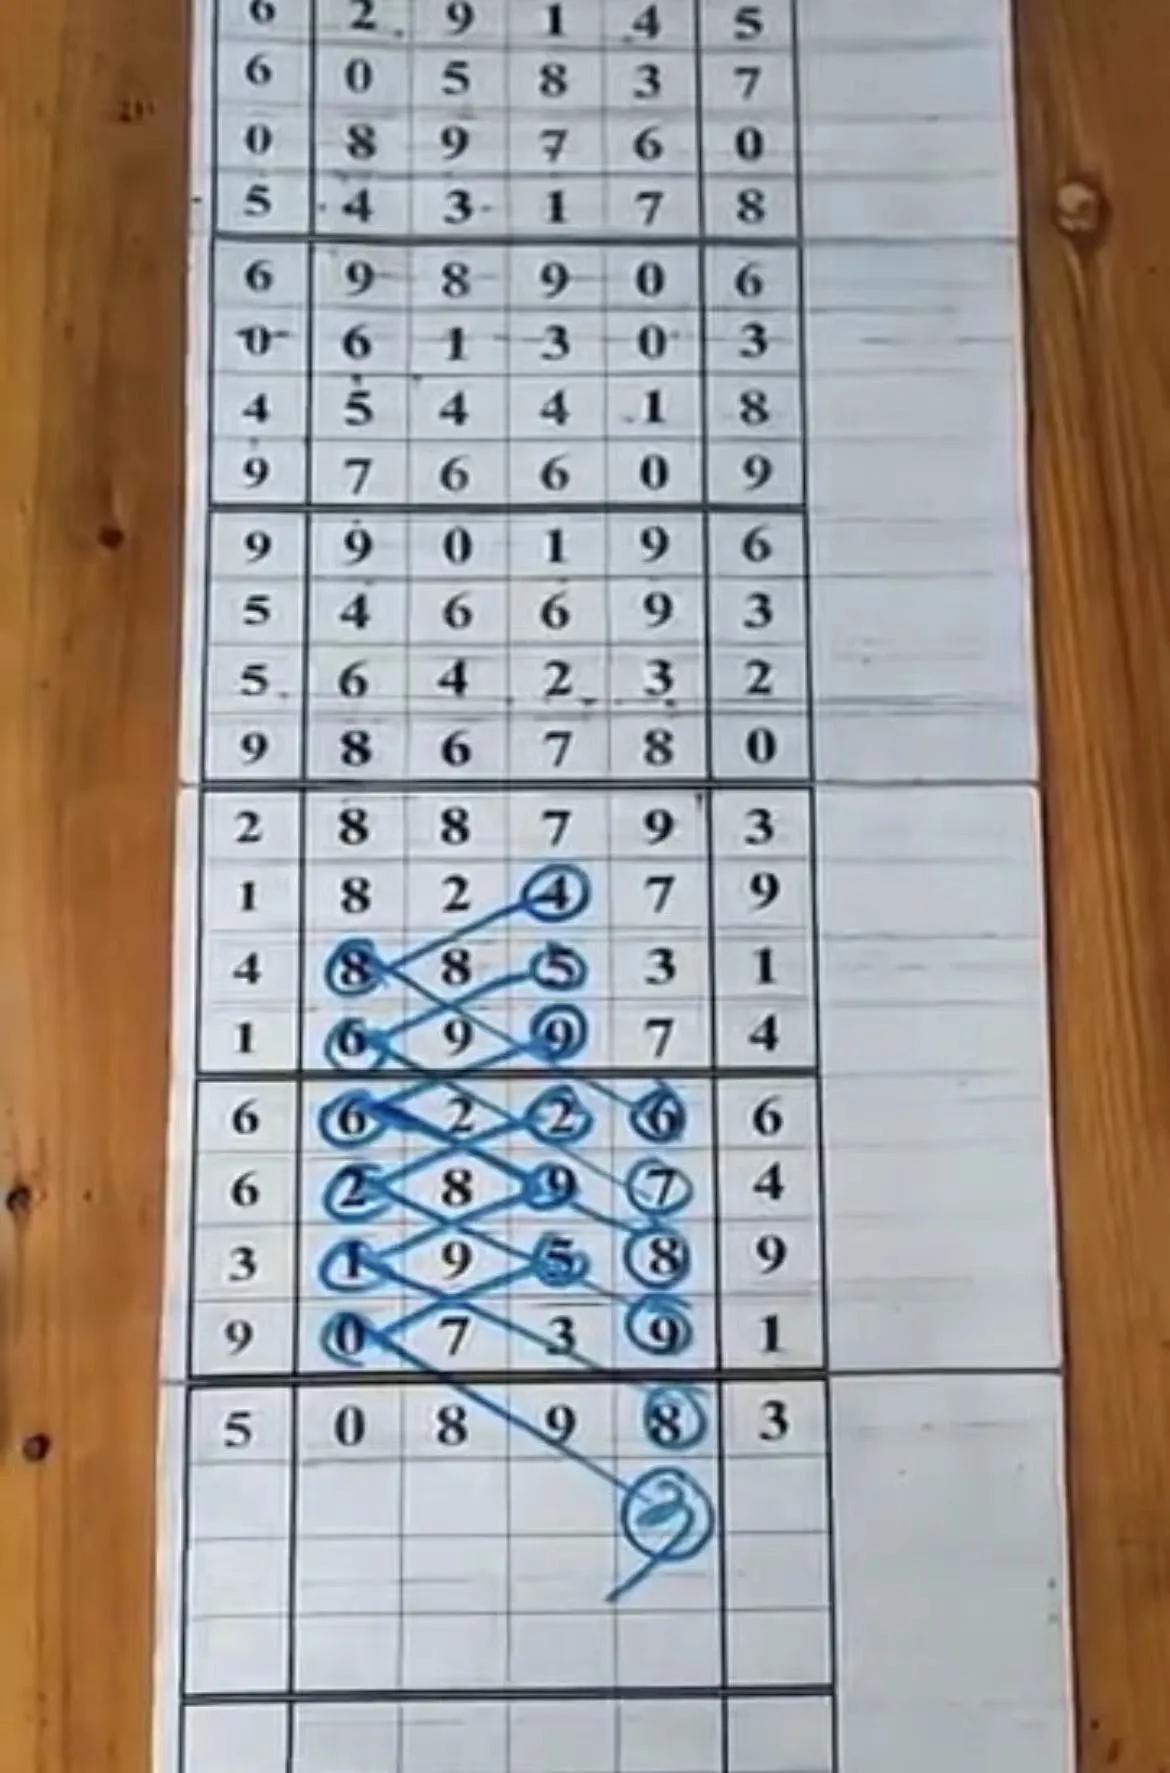 6 2 9 1 4 5
6 0 5 8 3 7
0 8 9 7 6 0
5 4 3 1 7 8
6 9 8 9 0 6
0 6 1 3 0 3
4 5 4 4 1 8
9 7 6 6 0 9
9 9 0 1 9 6
5 4 6 6 9 3
5 6 4 2 3 2
9 8 6 7 8 0
2 8 8 7 9 3
1 8 2 4 7 9
4 8 8 5 3 1
1 6 9 9 7 4
6 6 2 2 6 6
6 2 8 9 7 4
3 1 9 5 8 9
9 0 7 3 9 1
5 0 8 9 8 3